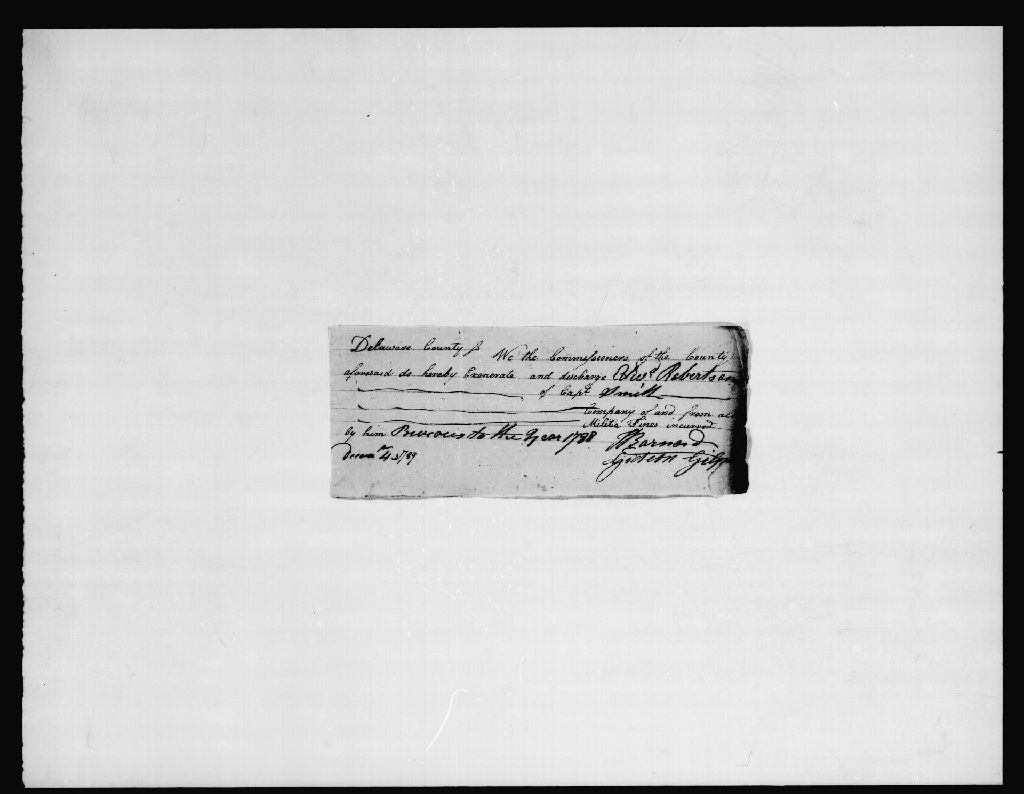 Delaware County ss We the Commissioners of the County
aforesaid do hereby Exonerate and discharge Edwd. Robertson
of Capt. Smith
Company of and from all
Militia Fines incurred
by him Previous to the Year 1788 J Barnard
Decem 4 1789 Gideon Gilp